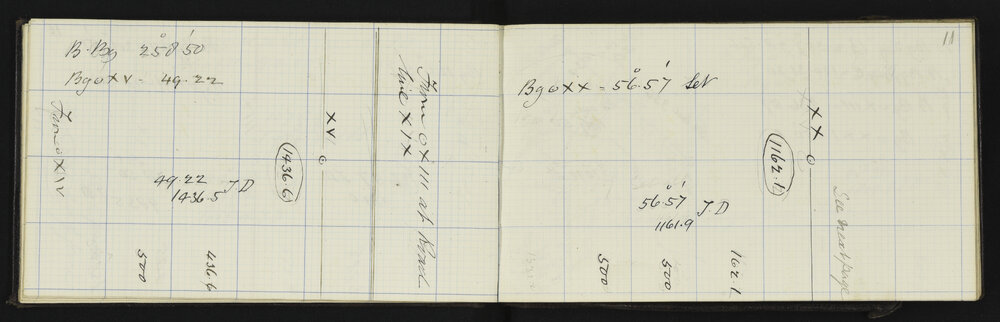 B. Bg 258° 50'
Bg o XV = 49.22
From o XIV
XV o
1436.6
49.22
1436.5 T D
436.6
500
From o XIII at Road
Line XIX
11
Bg o XX = 56° 57' Set
XX o
1162.1
56° 57'
1161.9 T.D
162.1
500
500
See next page